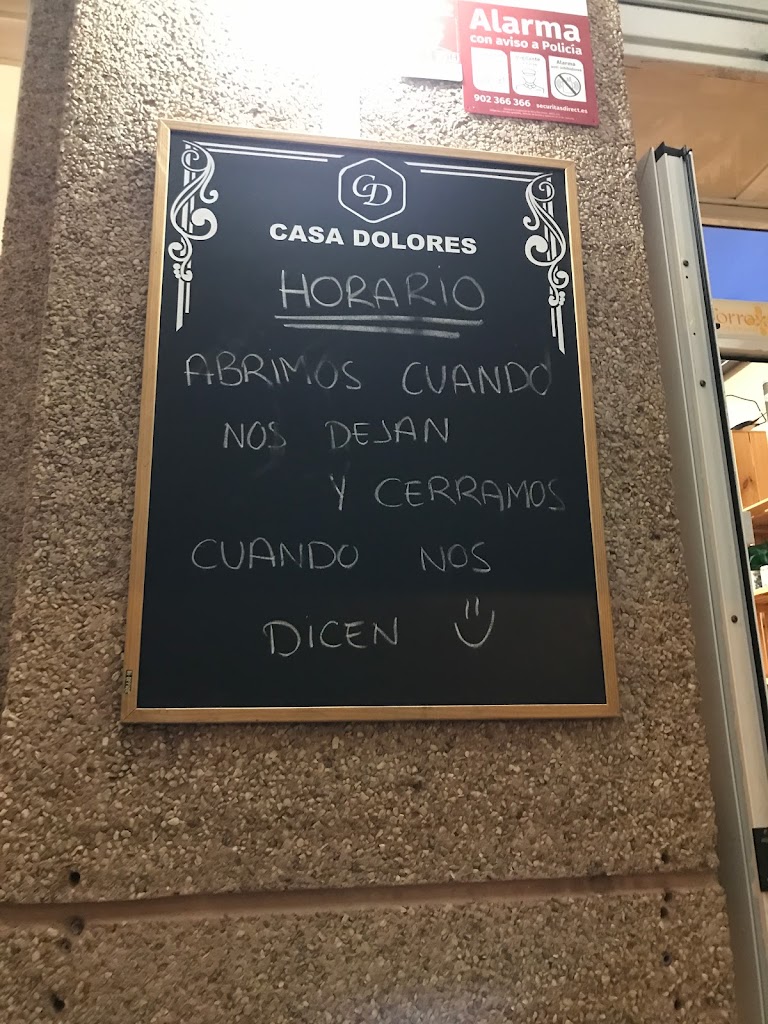 Alarma
con aviso a Policía
Alarma
902 366 366 securitasdirect.es
CD
CASA DOLORES
HORARIO
ABRIMOS CUANDO
NOS DEJAN
Y CERRAMOS
CUANDO NOS
DICEN